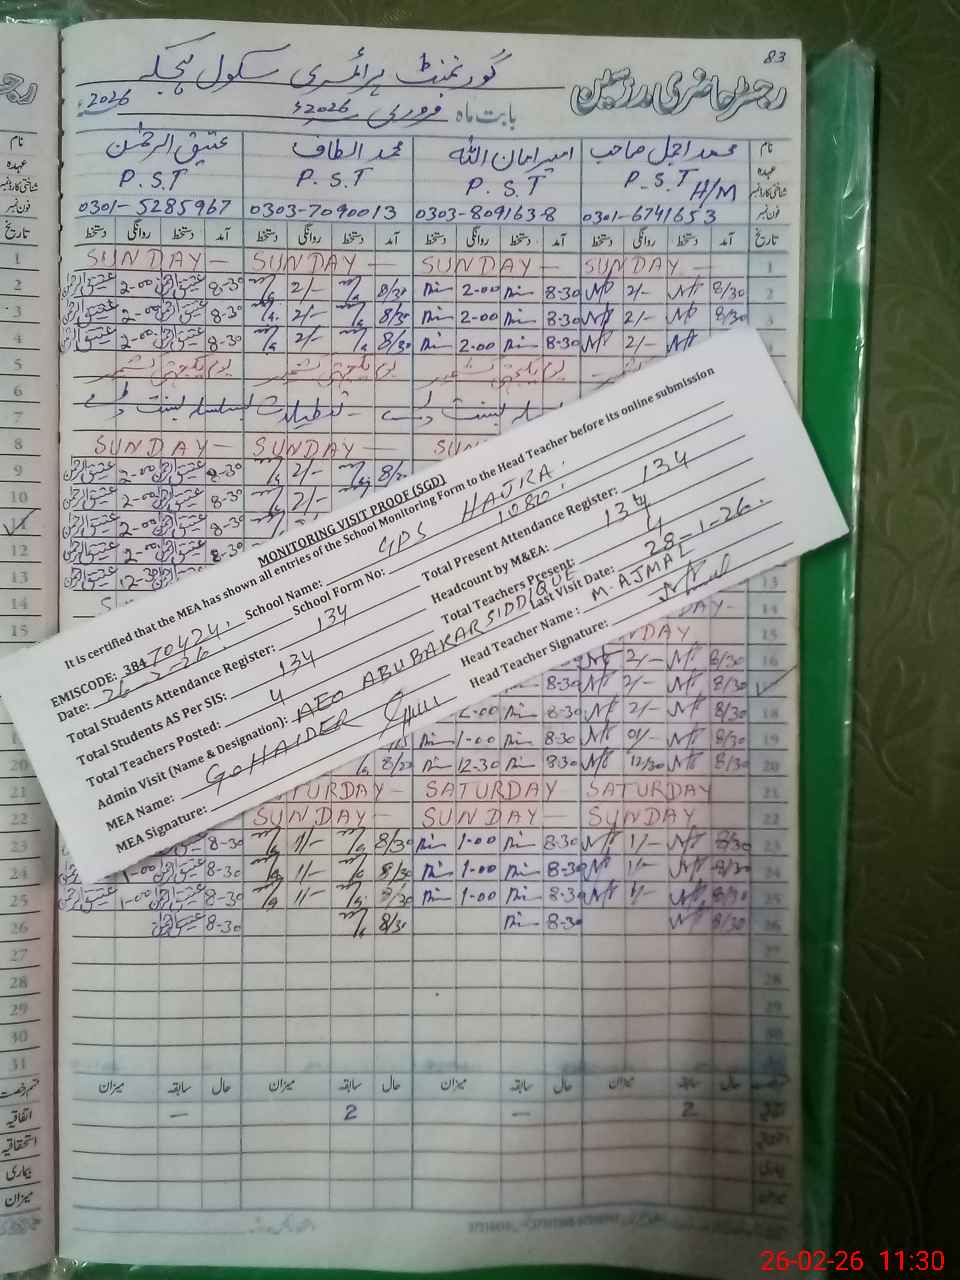 83
گورنمنٹ پرائمری سکول ہجکہ
رجسٹر حاضری مدرسین
بابت ماہ فروری 2026ء
2026
نام
محمد اجمل صاحب
امیر امان اللہ
محمد الطاف
عتیق الرحمٰن
عہدہ
P.S.T H/M
P.S.T
P.S.T
P.S.T
شناختی کارڈ نمبر
فون نمبر
0301-6741653
0303-8091638
0303-7090013
0301-5285967
تاریخ آمد دستخط روانگی دستخط آمد دستخط روانگی دستخط آمد دستخط روانگی دستخط آمد دستخط روانگی دستخط
1 SUNDAY SUNDAY SUNDAY SUNDAY 1
2 2-00 8-30 2/- 8/30 2-00 8-30 2/- 8/30 2
3 2-00 8-30 2/- 8/30 2-00 8-30 2/- 8/30 3
4 2-00 8-30 2/- 8/30 2-00 8-30 2/-
5 یوم یکجہتی کشمیر یوم یکجہتی کشمیر یوم یکجہتی کشمیر
6
7 تعطیلات بسلسلہ بسنت
8 SUNDAY SUNDAY
9 2-00 8-30 2/-
10 2-00 8-30 2/-
11 2-00 8-30
12 2-00 8-30
13 12-30 8-30
14
15
MONITORING VISIT PROOF (SGD)
It is certified that the MEA has shown all entries of the School Monitoring Form to the Head Teacher before its online submission
EMISCODE: 38470424. School Name: GPS HAJRA.
Date: 26-2-26. School Form No: 1080.
Total Students Attendance Register: 134 Total Present Attendance Register: 134
Total Students AS Per SIS: 134 Headcount by M&EA: 134
Total Teachers Posted: 4 Total Teachers Present: 4
Admin Visit (Name & Designation): AEO ABUBAKAR SIDDIQUE Last Visit Date: 28-1-26.
MEA Name: G. HAIDER Head Teacher Name: M. AJMAL
MEA Signature: Head Teacher Signature:
16 2/- 8/30
8-30 2/- 8/30
2-00 8-30 2/- 8/30 18
1-00 8-30 01/- 8/30 19
20 12-30 8-30 12/30 8/30 20
21 SATURDAY SATURDAY SATURDAY 21
22 SUNDAY SUNDAY SUNDAY 22
23 8-30 1/- 8/30 1-00 8-30 1/- 8/30 23
24 1-00 8-30 1/- 8/30 1-00 8-30 1/- 8/30 24
25 1-00 8-30 1/- 8/30 1-00 8-30 1/- 8/30 25
26 8-30 8/30 8-30 8/30 26
27 27
28 28
29 29
30 30
31
حال سابقہ میزان حال سابقہ میزان حال سابقہ میزان حال سابقہ میزان
اتفاقیہ 2 - 2 -
استحقاقیہ
بیماری
میزان
26-02-26 11:30